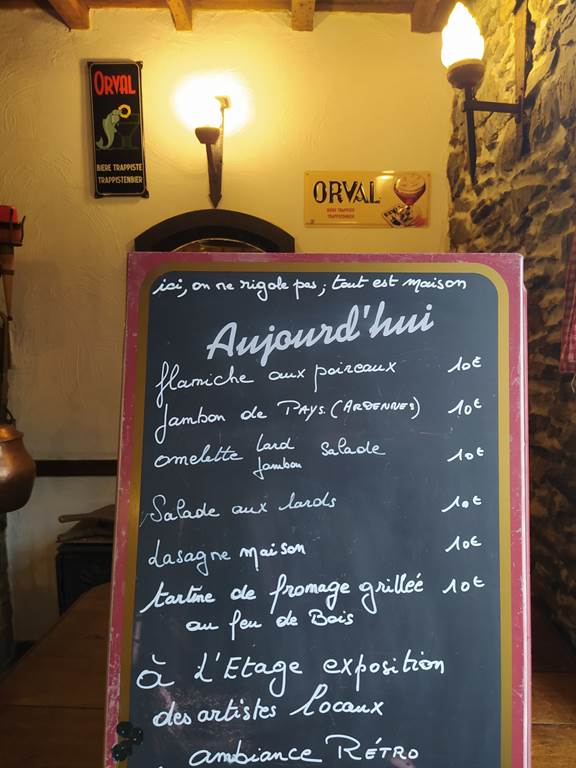 ORVAL
BIÈRE TRAPPISTE
TRAPPISTENBIER
ORVAL
BIÈRE TRAPPISTE
TRAPPISTENBIER
ici, on ne rigole pas, tout est maison
Aujourd'hui
flamiche aux poireaux 10€
Jambon de PAYS (ARDENNES) 10€
omelette lard jambon Salade 10€
Salade aux lards 10€
Lasagne maison 10€
tartine de fromage grilleé 10€
au feu de Bois
à L'Etage exposition
des artistes locaux
ambiance RÉTRO